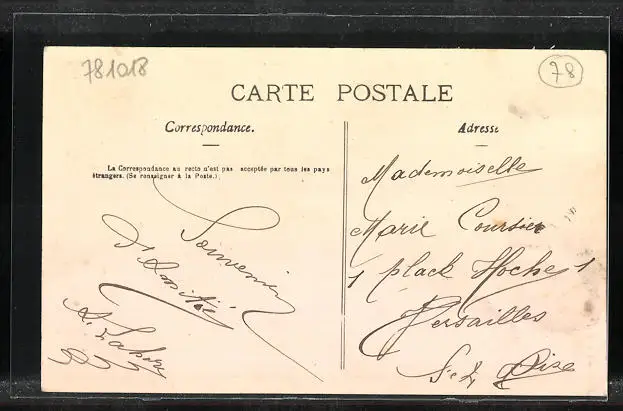 781018
78
CARTE POSTALE
Correspondance.
La Correspondance au recto n'est pas acceptée par tous les pays
étrangers. (Se renseigner à la Poste.)
Souvenir
d'Amitié
Adresse
Mademoiselle
Marie Coursier
1 place Hoche 1
Versailles
S. & Oise